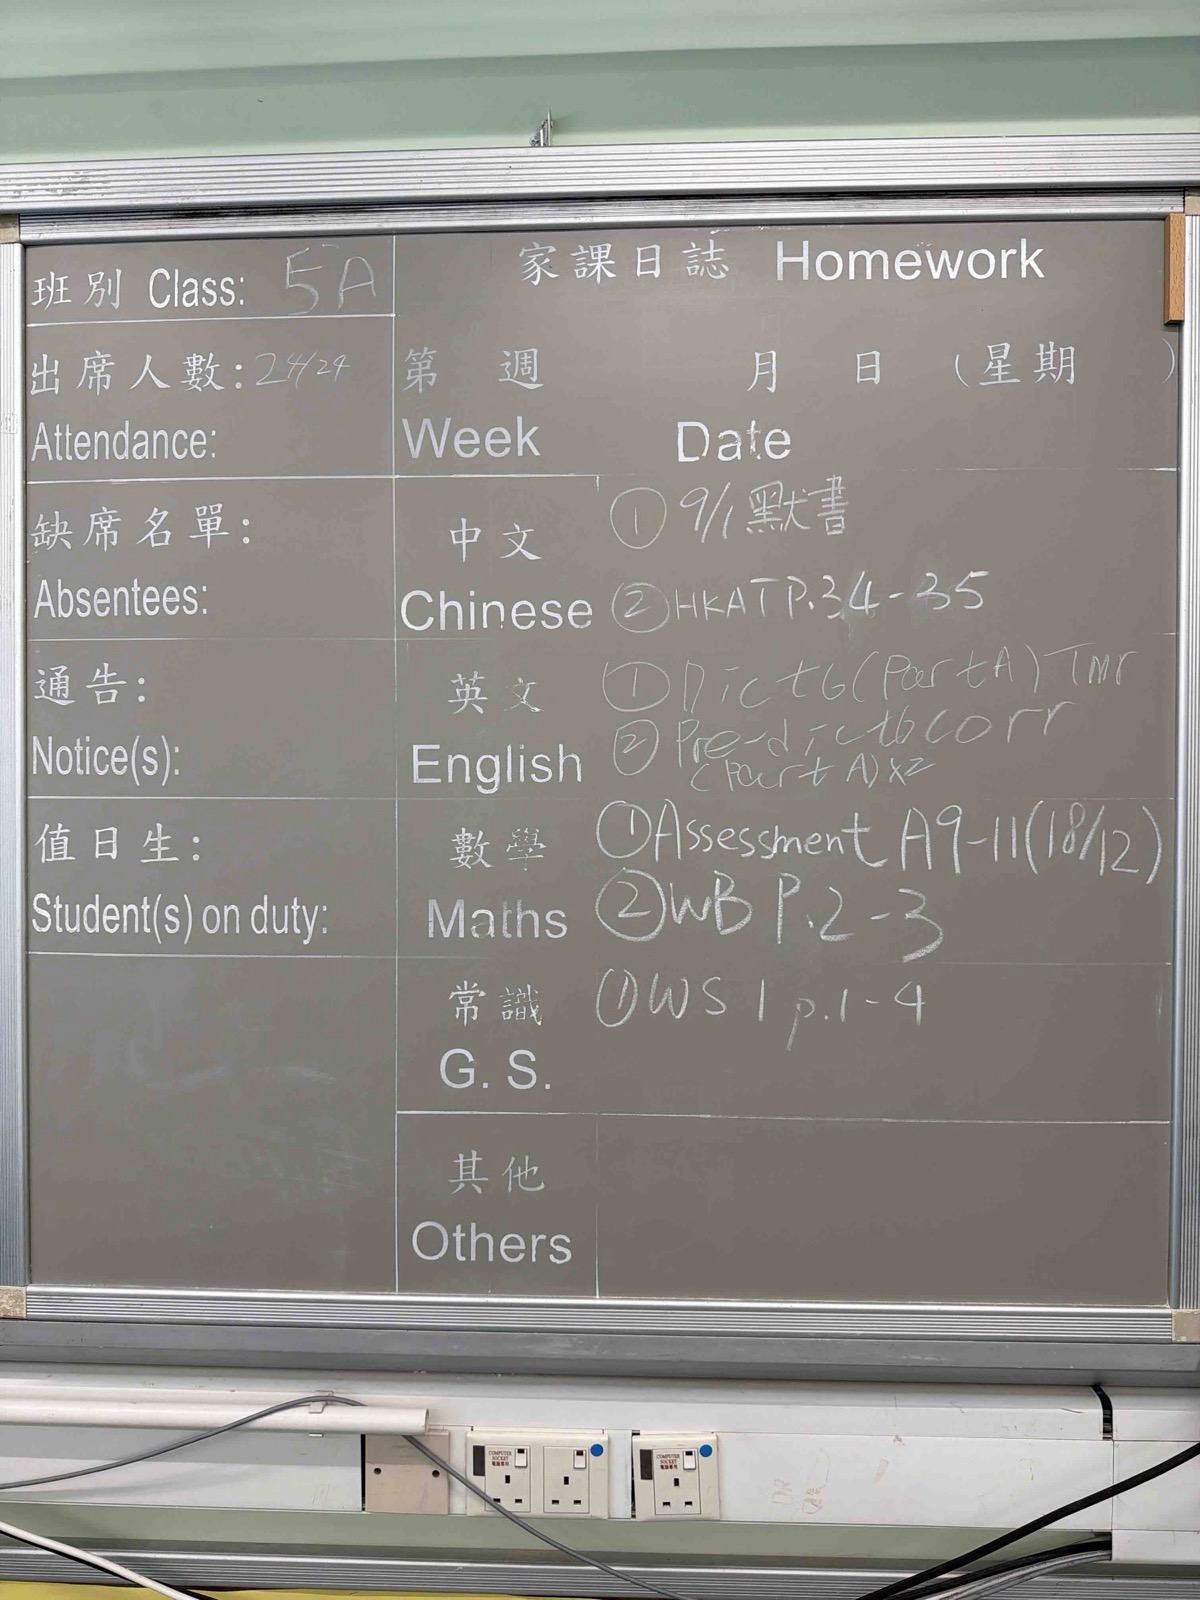 班別 Class: 5A
家課日誌 Homework
出席人數: 24/24
Attendance:
第 週 月 日 (星期 )
Week Date
缺席名單:
Absentees:
中文
Chinese
① 9/1 默書
② HKAT P.34-35
通告:
Notice(s):
英文
English
① Dict 6 (Part A) Tmr
② Pre-dict 6 corr
(Part A) x2
值日生:
Student(s) on duty:
數學
Maths
① Assessment A9-11 (18/12)
② WB P.2-3
常識
G. S.
① WS 1 p.1-4
其他
Others
COMPUTER
SOCKET
電腦專用
COMPUTER
SOCKET
電腦專用